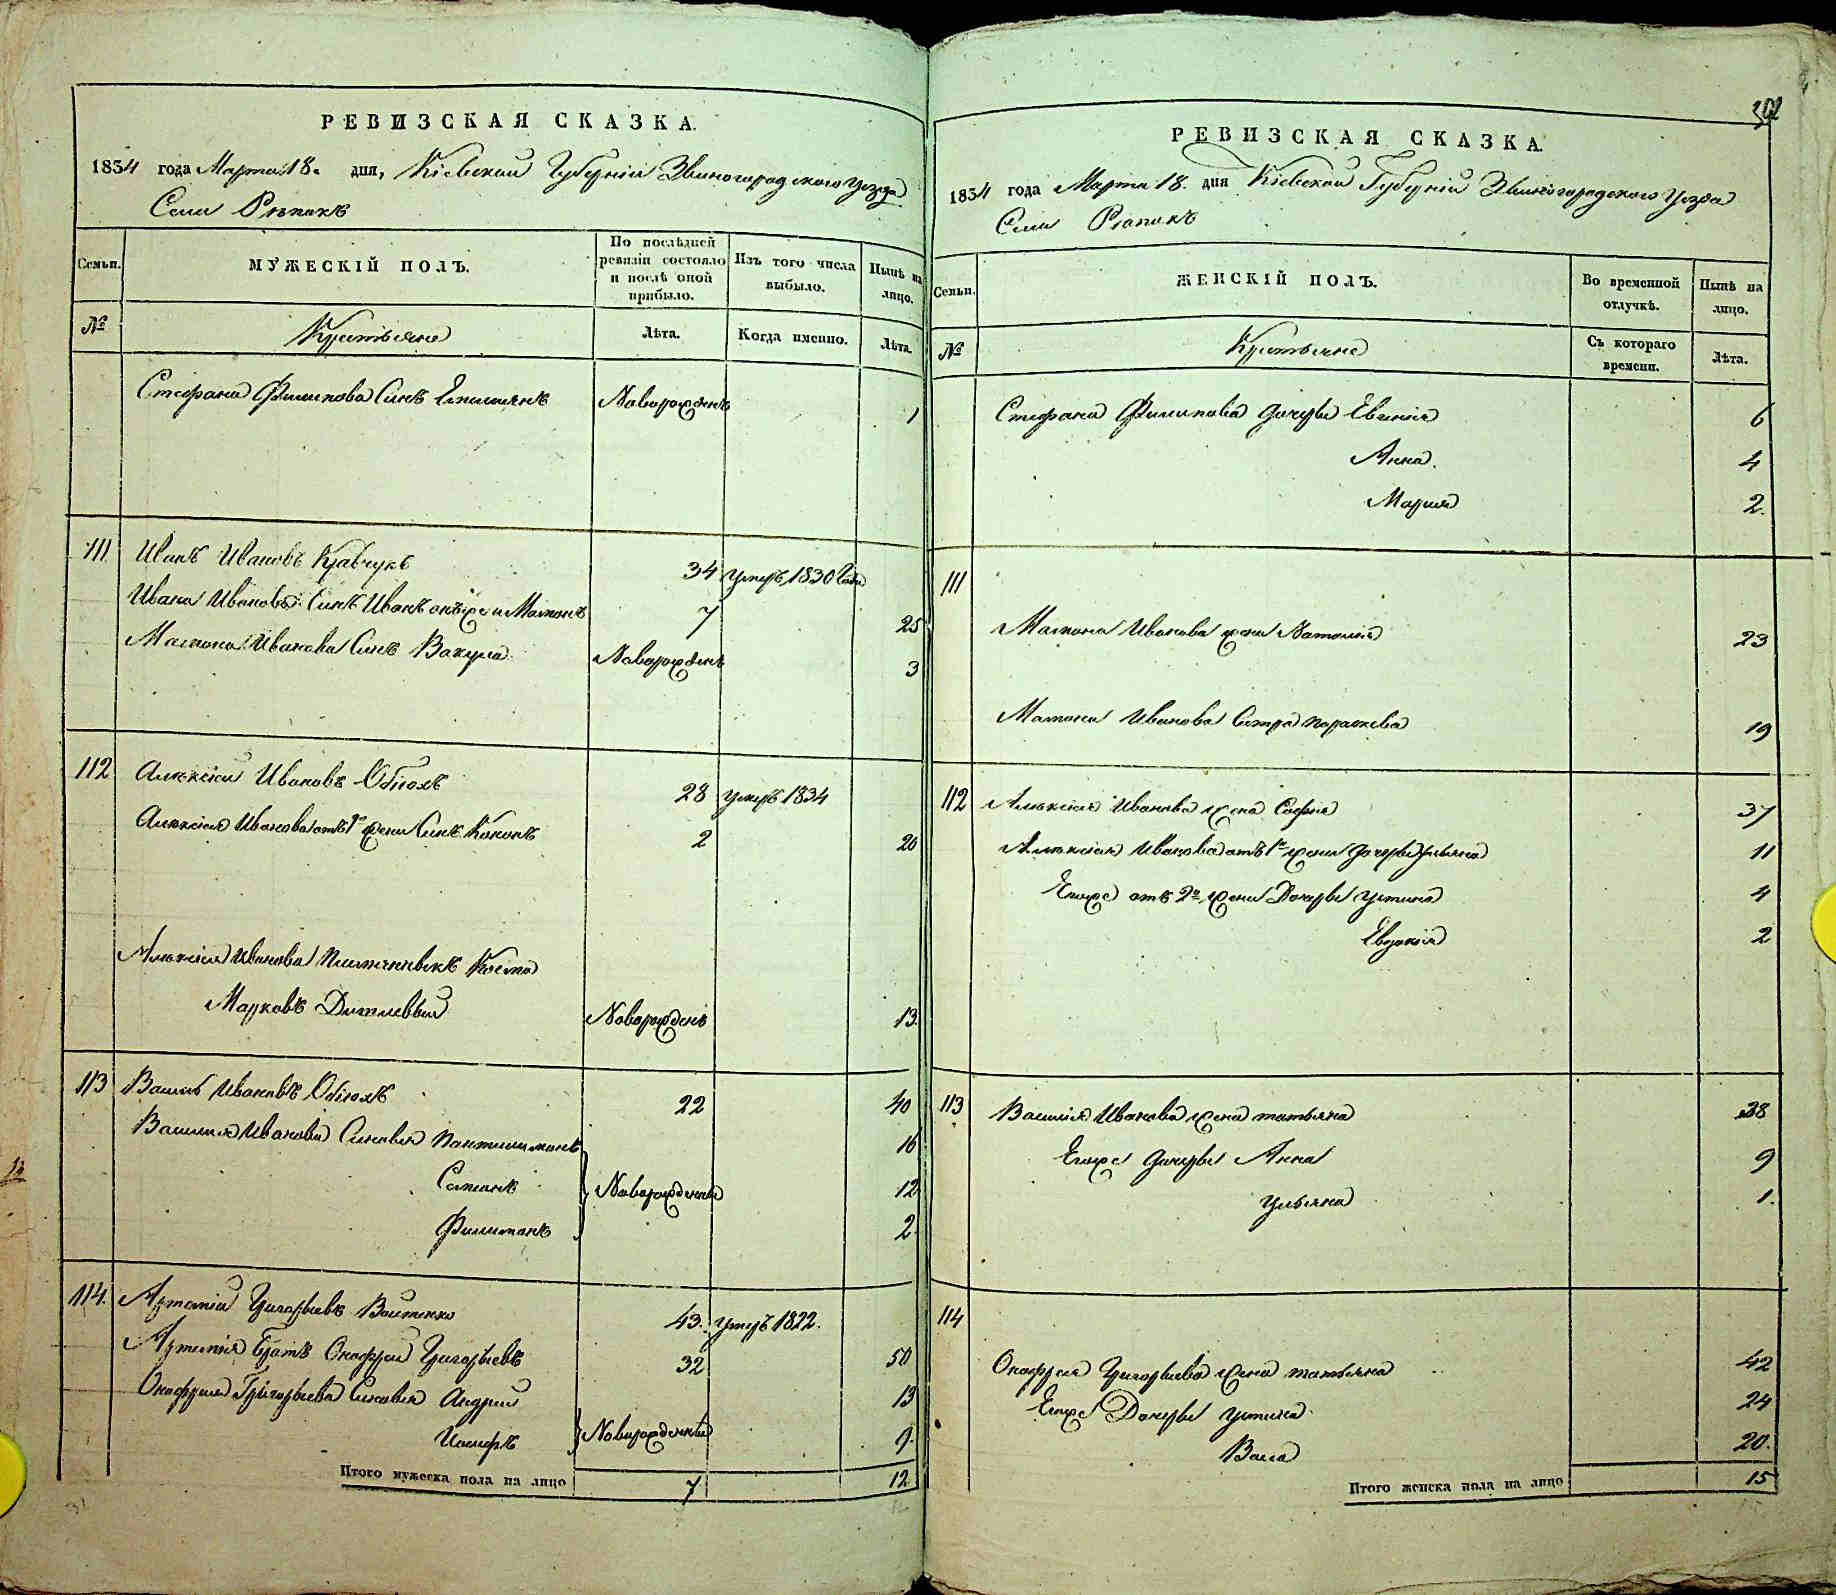 РЕВИЗСКАЯ СКАЗКА.
1834 года Марта 18. дня, Кіевской Губерніи Звиногородского Уезда
Села Рѣпокъ
Семьи. МУЖЕСКІЙ ПОЛЪ. По послѣдней ревизіи состояло и послѣ оной прибыло. Изъ того числа выбыло. Нынѣ на лицо.
№ Крестьяне Лѣта. Когда именно. Лѣта.
Стефана Филипова Синъ Новорожденъ 1
111 Иванъ Ивановъ Кравчукъ 34 умеръ 1830 Года
Ивана Иванова Синъ Иванъ онъже и Мамонъ 7 25
Мамона Иванова Синъ Вакула Новорожденъ 3
112 Алексій Ивановъ 28 умеръ 1834
Алексія Иванова отъ 1й жени Синъ Кононъ 2 20
Алексія Иванова Козма
Марковъ Новорожденъ 13.
113 Василь Ивановъ 22 40
Василія Иванова Синовья Пантилимонъ 16
Семенъ Новорожденни 12
Филимонъ 2
114. Артемій Григорьевъ Войтенко 43. умеръ 1822.
Артемія Братъ Онофрей Григорьевъ 32 50
Онофрея Григорьева Синовья Андрій 13
Иосифъ Новорожденній 9.
Итого мужеска пола на лицо 7 12
РЕВИЗСКАЯ СКАЗКА.
1834 года Марта 18. дня Кіевской Губерніи Звиногородского Уезда
Села Рѣпокъ
Семьи. ЖЕНСКІЙ ПОЛЪ. Во временной отлучкѣ. Нынѣ на лицо.
№ Крестьяне Съ котораго времени. Лѣта.
Стефана Филипова дочери Евгенія 6
Анна. 4
Марія 2.
111
Мамона Иванова жена Наталія 23
Мамона Иванова Сестра Параскева 19
112 Алексія Иванова жена Софія 37
Алексія Иванова отъ 1й жени дочерь Ульяна 11
Егоже отъ 2й жени Дочери Устинія 4
Евдокія 2
113 Василія Иванова жена татьяна 38
Егоже дочери Анна 9
Ульяна 1.
114
Онофрея Григорьева жена татьяна 42
Егоже Дочери Устина 24
Васса 20.
Итого женска пола на лицо 15